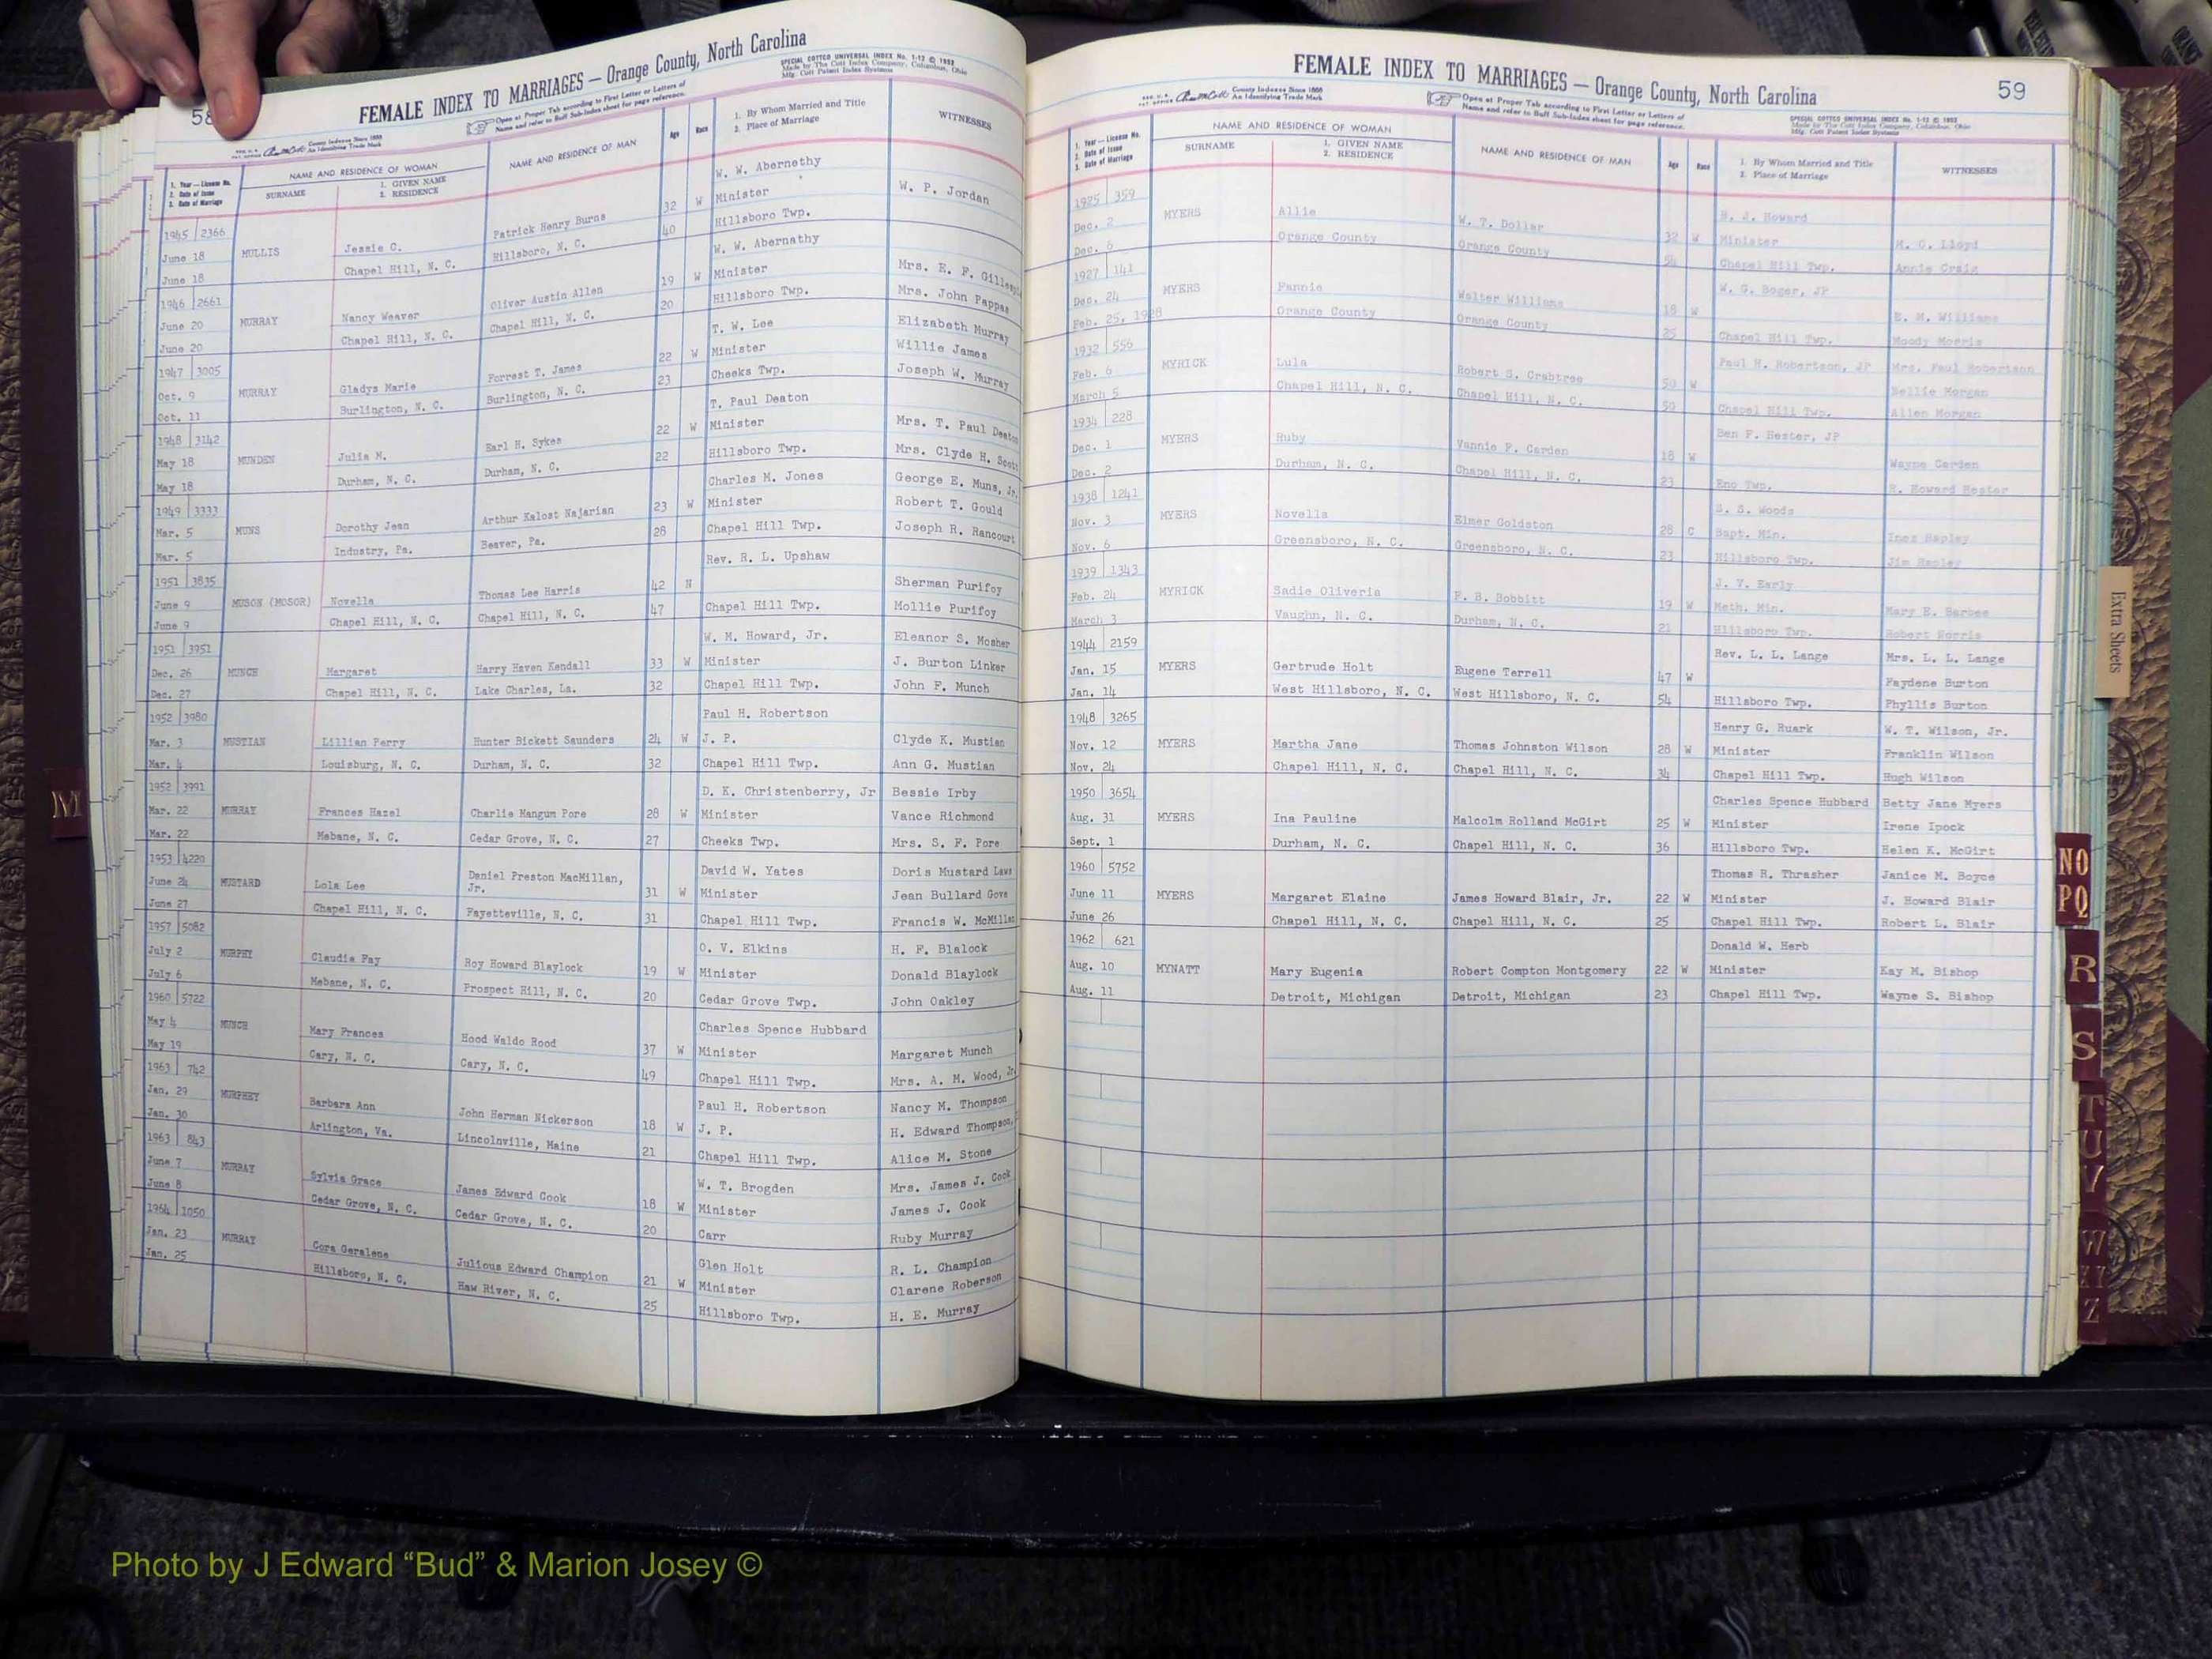 58
FEMALE INDEX TO MARRIAGES — Orange County, North Carolina
SPECIAL COTTCO UNIVERSAL INDEX No. 1-12 © 1952
Made by The Cott Index Company, Columbus, Ohio
Mfg. Cott Patent Index Systems
County Indexes Since 1888
An Identifying Trade Mark
Open at Proper Tab according to First Letter or Letters of
Name and refer to Buff Sub-Index sheet for page reference.
1. Year — License No.
2. Date of Issue
3. Date of Marriage
NAME AND RESIDENCE OF WOMAN
SURNAME
1. GIVEN NAME
2. RESIDENCE
NAME AND RESIDENCE OF MAN
Age
Race
1. By Whom Married and Title
2. Place of Marriage
WITNESSES
1945 2366 W. W. Abernethy
June 18 MULLIS Jessie C. Patrick Henry Burns 32 W Minister W. P. Jordan
June 18 Chapel Hill, N. C. Hillsboro, N. C. 40 Hillsboro Twp.
1946 2661 W. W. Abernathy
June 20 MURRAY Nancy Weaver Oliver Austin Allen 19 W Minister Mrs. E. F.
June 20 Chapel Hill, N. C. Chapel Hill, N. C. 20 Hillsboro Twp. Mrs. John Pappas
1947 3005 T. W. Lee Elizabeth Murray
Oct. 9 MURRAY Gladys Marie Forrest T. James 22 W Minister Willie James
Oct. 11 Burlington, N. C. Burlington, N. C. 23 Cheeks Twp. Joseph W. Murray
1948 3142 T. Paul Deaton
May 18 MUNDEN Julia M. Earl H. Sykes 22 W Minister Mrs. T. Paul Deaton
May 18 Durham, N. C. Durham, N. C. 22 Hillsboro Twp. Mrs. Clyde H. Scott
1949 3333 Charles M. Jones George E. Muns, Jr.
Mar. 5 MUNS Dorothy Jean Arthur Kalost Najarian 23 W Minister Robert T. Gould
Mar. 5 Industry, Pa. Beaver, Pa. 28 Chapel Hill Twp. Joseph R. Rancourt
1951 3835 Rev. R. L. Upshaw
June 9 MUSON (MOSOR) Novella Thomas Lee Harris 42 N Sherman Purifoy
June 9 Chapel Hill, N. C. Chapel Hill, N. C. 47 Chapel Hill Twp. Mollie Purifoy
1951 3951 W. M. Howard, Jr. Eleanor S. Mosher
Dec. 26 MUNCH Margaret Harry Haven Kendall 33 W Minister J. Burton Linker
Dec. 27 Chapel Hill, N. C. Lake Charles, La. 32 Chapel Hill Twp. John F. Munch
1952 3980 Paul H. Robertson
Mar. 3 MUSTIAN Lillian Perry Hunter Bickett Saunders 24 W J. P. Clyde K. Mustian
Mar. 4 Louisburg, N. C. Durham, N. C. 32 Chapel Hill Twp. Ann G. Mustian
1952 3991 D. K. Christenberry, Jr Bessie Irby
Mar. 22 MURRAY Frances Hazel Charlie Mangum Pore 28 W Minister Vance Richmond
Mar. 22 Mebane, N. C. Cedar Grove, N. C. 27 Cheeks Twp. Mrs. S. F. Pore
1953 4220 David W. Yates Doris Mustard Laws
June 24 MUSTARD Lola Lee Daniel Preston MacMillan, Jr. 31 W Minister Jean Bullard Gove
June 27 Chapel Hill, N. C. Fayetteville, N. C. 31 Chapel Hill Twp. Francis W. McMillan
1957 5082 O. V. Elkins H. F. Blalock
July 2 MURPHY Claudia Fay Roy Howard Blaylock 19 W Minister Donald Blaylock
July 6 Mebane, N. C. Prospect Hill, N. C. 20 Cedar Grove Twp. John Oakley
1960 5722 Charles Spence Hubbard
May 4 MUNCH Mary Frances Hood Waldo Rood 37 W Minister Margaret Munch
May 19 Cary, N. C. Cary, N. C. 49 Chapel Hill Twp. Mrs. A. M. Wood, Jr.
1963 742 Paul H. Robertson Nancy M. Thompson
Jan. 29 MURPHEY Barbara Ann John Herman Nickerson 18 W J. P. H. Edward Thompson,
Jan. 30 Arlington, Va. Lincolnville, Maine 21 Chapel Hill Twp. Alice M. Stone
1963 843 W. T. Brogden Mrs. James J. Cook
June 7 MURRAY Sylvia Grace James Edward Cook 18 W Minister James J. Cook
June 8 Cedar Grove, N. C. Cedar Grove, N. C. 20 Carr Ruby Murray
1964 1050 Glen Holt R. L. Champion
Jan. 23 MURRAY Cora Geralene Julious Edward Champion 21 W Minister Clarene Roberson
Jan. 25 Hillsboro, N. C. Haw River, N. C. 25 Hillsboro Twp. H. E. Murray
M
FEMALE INDEX TO MARRIAGES — Orange County, North Carolina
59
County Indexes Since 1888
An Identifying Trade Mark
Open at Proper Tab according to First Letter or Letters of
Name and refer to Buff Sub-Index sheet for page reference.
SPECIAL COTTCO UNIVERSAL INDEX No. 1-12 © 1952
Made by The Cott Index Company, Columbus, Ohio
Mfg. Cott Patent Index Systems
1. Year — License No.
2. Date of Issue
3. Date of Marriage
NAME AND RESIDENCE OF WOMAN
SURNAME
1. GIVEN NAME
2. RESIDENCE
NAME AND RESIDENCE OF MAN
Age
Race
1. By Whom Married and Title
2. Place of Marriage
WITNESSES
1925 359 J. Howard
Dec. 2 MYERS Allie W. T. Dollar 32 W Minister M. O. Lloyd
Dec. 6 Orange County Orange County 54 Chapel Hill Twp. Annie Craig
1927 141 W. G. Boger, JP
Dec. 24 MYERS Fannie Walter Williams 18 W E. M. Williams
Feb. 25, 1928 Orange County Orange County 25 Chapel Hill Twp. Moody Morris
1932 556 Paul H. Robertson, JP Mrs. Paul Robertson
Feb. 6 MYRICK Lula Robert S. Crabtree 50 W Nellie Morgan
March 5 Chapel Hill, N. C. Chapel Hill, N. C. 50 Chapel Hill Twp. Allen Morgan
1934 228 Ben F. Hester, JP
Dec. 1 MYERS Ruby Vannie F. Carden 18 W Wayne Carden
Dec. 2 Durham, N. C. Chapel Hill, N. C. 23 Eno Twp. R. Howard Hester
1938 1241 S. S. Woods
Nov. 3 MYERS Novella Elmer Goldston 28 C Bapt. Min. Inez Rapley
Nov. 6 Greensboro, N. C. Greensboro, N. C. 23 Hillsboro Twp. Jim Rapley
1939 1343 J. V. Early
Feb. 24 MYRICK Sadie Oliveria F. B. Bobbitt 19 W Meth. Min. Mary E. Barbee
March 3 Vaughn, N. C. Durham, N. C. 21 Hillsboro Twp. Robert Norris
1944 2159 Rev. L. L. Lange Mrs. L. L. Lange
Jan. 15 MYERS Gertrude Holt Eugene Terrell 47 W Faydene Burton
Jan. 14 West Hillsboro, N. C. West Hillsboro, N. C. 54 Hillsboro Twp. Phyllis Burton
1948 3265 Henry G. Ruark W. T. Wilson, Jr.
Nov. 12 MYERS Martha Jane Thomas Johnston Wilson 28 W Minister Franklin Wilson
Nov. 24 Chapel Hill, N. C. Chapel Hill, N. C. 34 Chapel Hill Twp. Hugh Wilson
1950 3654 Charles Spence Hubbard Betty Jane Myers
Aug. 31 MYERS Ina Pauline Malcolm Rolland McGirt 25 W Minister Irene Ipock
Sept. 1 Durham, N. C. Chapel Hill, N. C. 36 Hillsboro Twp. Helen K. McGirt
1960 5752 Thomas R. Thrasher Janice M. Boyce
June 11 MYERS Margaret Elaine James Howard Blair, Jr. 22 W Minister J. Howard Blair
June 26 Chapel Hill, N. C. Chapel Hill, N. C. 25 Chapel Hill Twp. Robert L. Blair
1962 621 Donald W. Herb
Aug. 10 MYNATT Mary Eugenia Robert Compton Montgomery 22 W Minister Kay M. Bishop
Aug. 11 Detroit, Michigan Detroit, Michigan 23 Chapel Hill Twp. Wayne S. Bishop
Extra Sheets
NO
PQ
R
S
T
U
V
W
Z
Photo by J Edward “Bud” & Marion Josey ©